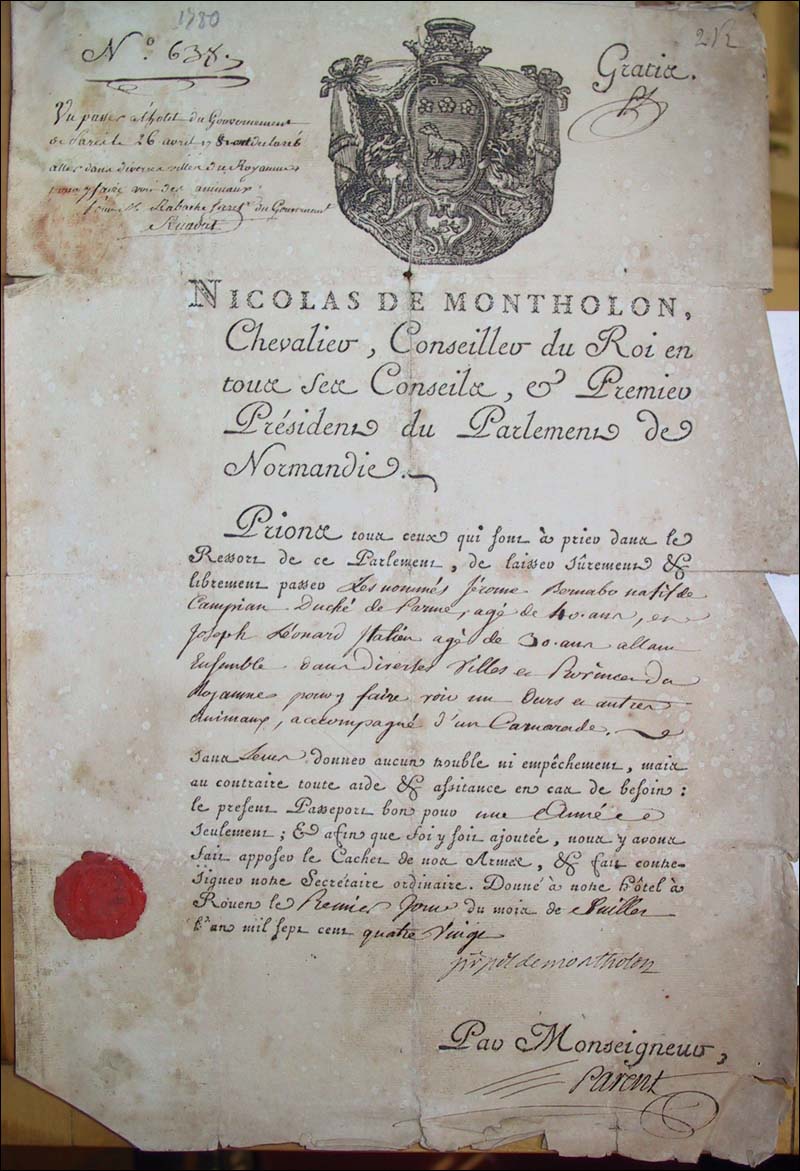 1780
212
N.° 638.
Gratis.
Vu passer à l'hotel du Gouvernement
de Paris le 26 avril
aller dans diverses villes du Royaume
pour y faire voir des animaux
du Gouvernement
NICOLAS DE MONTHOLON,
Chevalier, Conseiller du Roi en
tous ses Conseils, & Premier
Président du Parlement de
Normandie.
Prions tous ceux qui sont à prier dans le
Ressort de ce Parlement, de laisser sûrement &
librement passer Les nommés Jérome Bernabo natif de
Campian Duché de Parme, agé de 40. ans, et
Joseph Léonard Italien agé de 30. ans allant
Ensemble dans diverses Villes et Provinces du
Royaume pour y faire voir un Ours et autres
animaux, accompagné d'un Camarade.
sans Leur donner aucun trouble ni empêchement, mais
au contraire toute aide & assitance en cas de besoin :
le présent Passeport bon pour une Année
seulement ; Et afin que foi y soit ajoutée, nous y avons
fait apposer le Cachet de nos Armes, & fait contre-
signer notre Secrétaire ordinaire. Donné à notre hôtel à
Rouen le Premier Jour du mois de Juillet
l'an mil sept cent quatre Vingt
de montholon
Par Monseigneur,
Parent